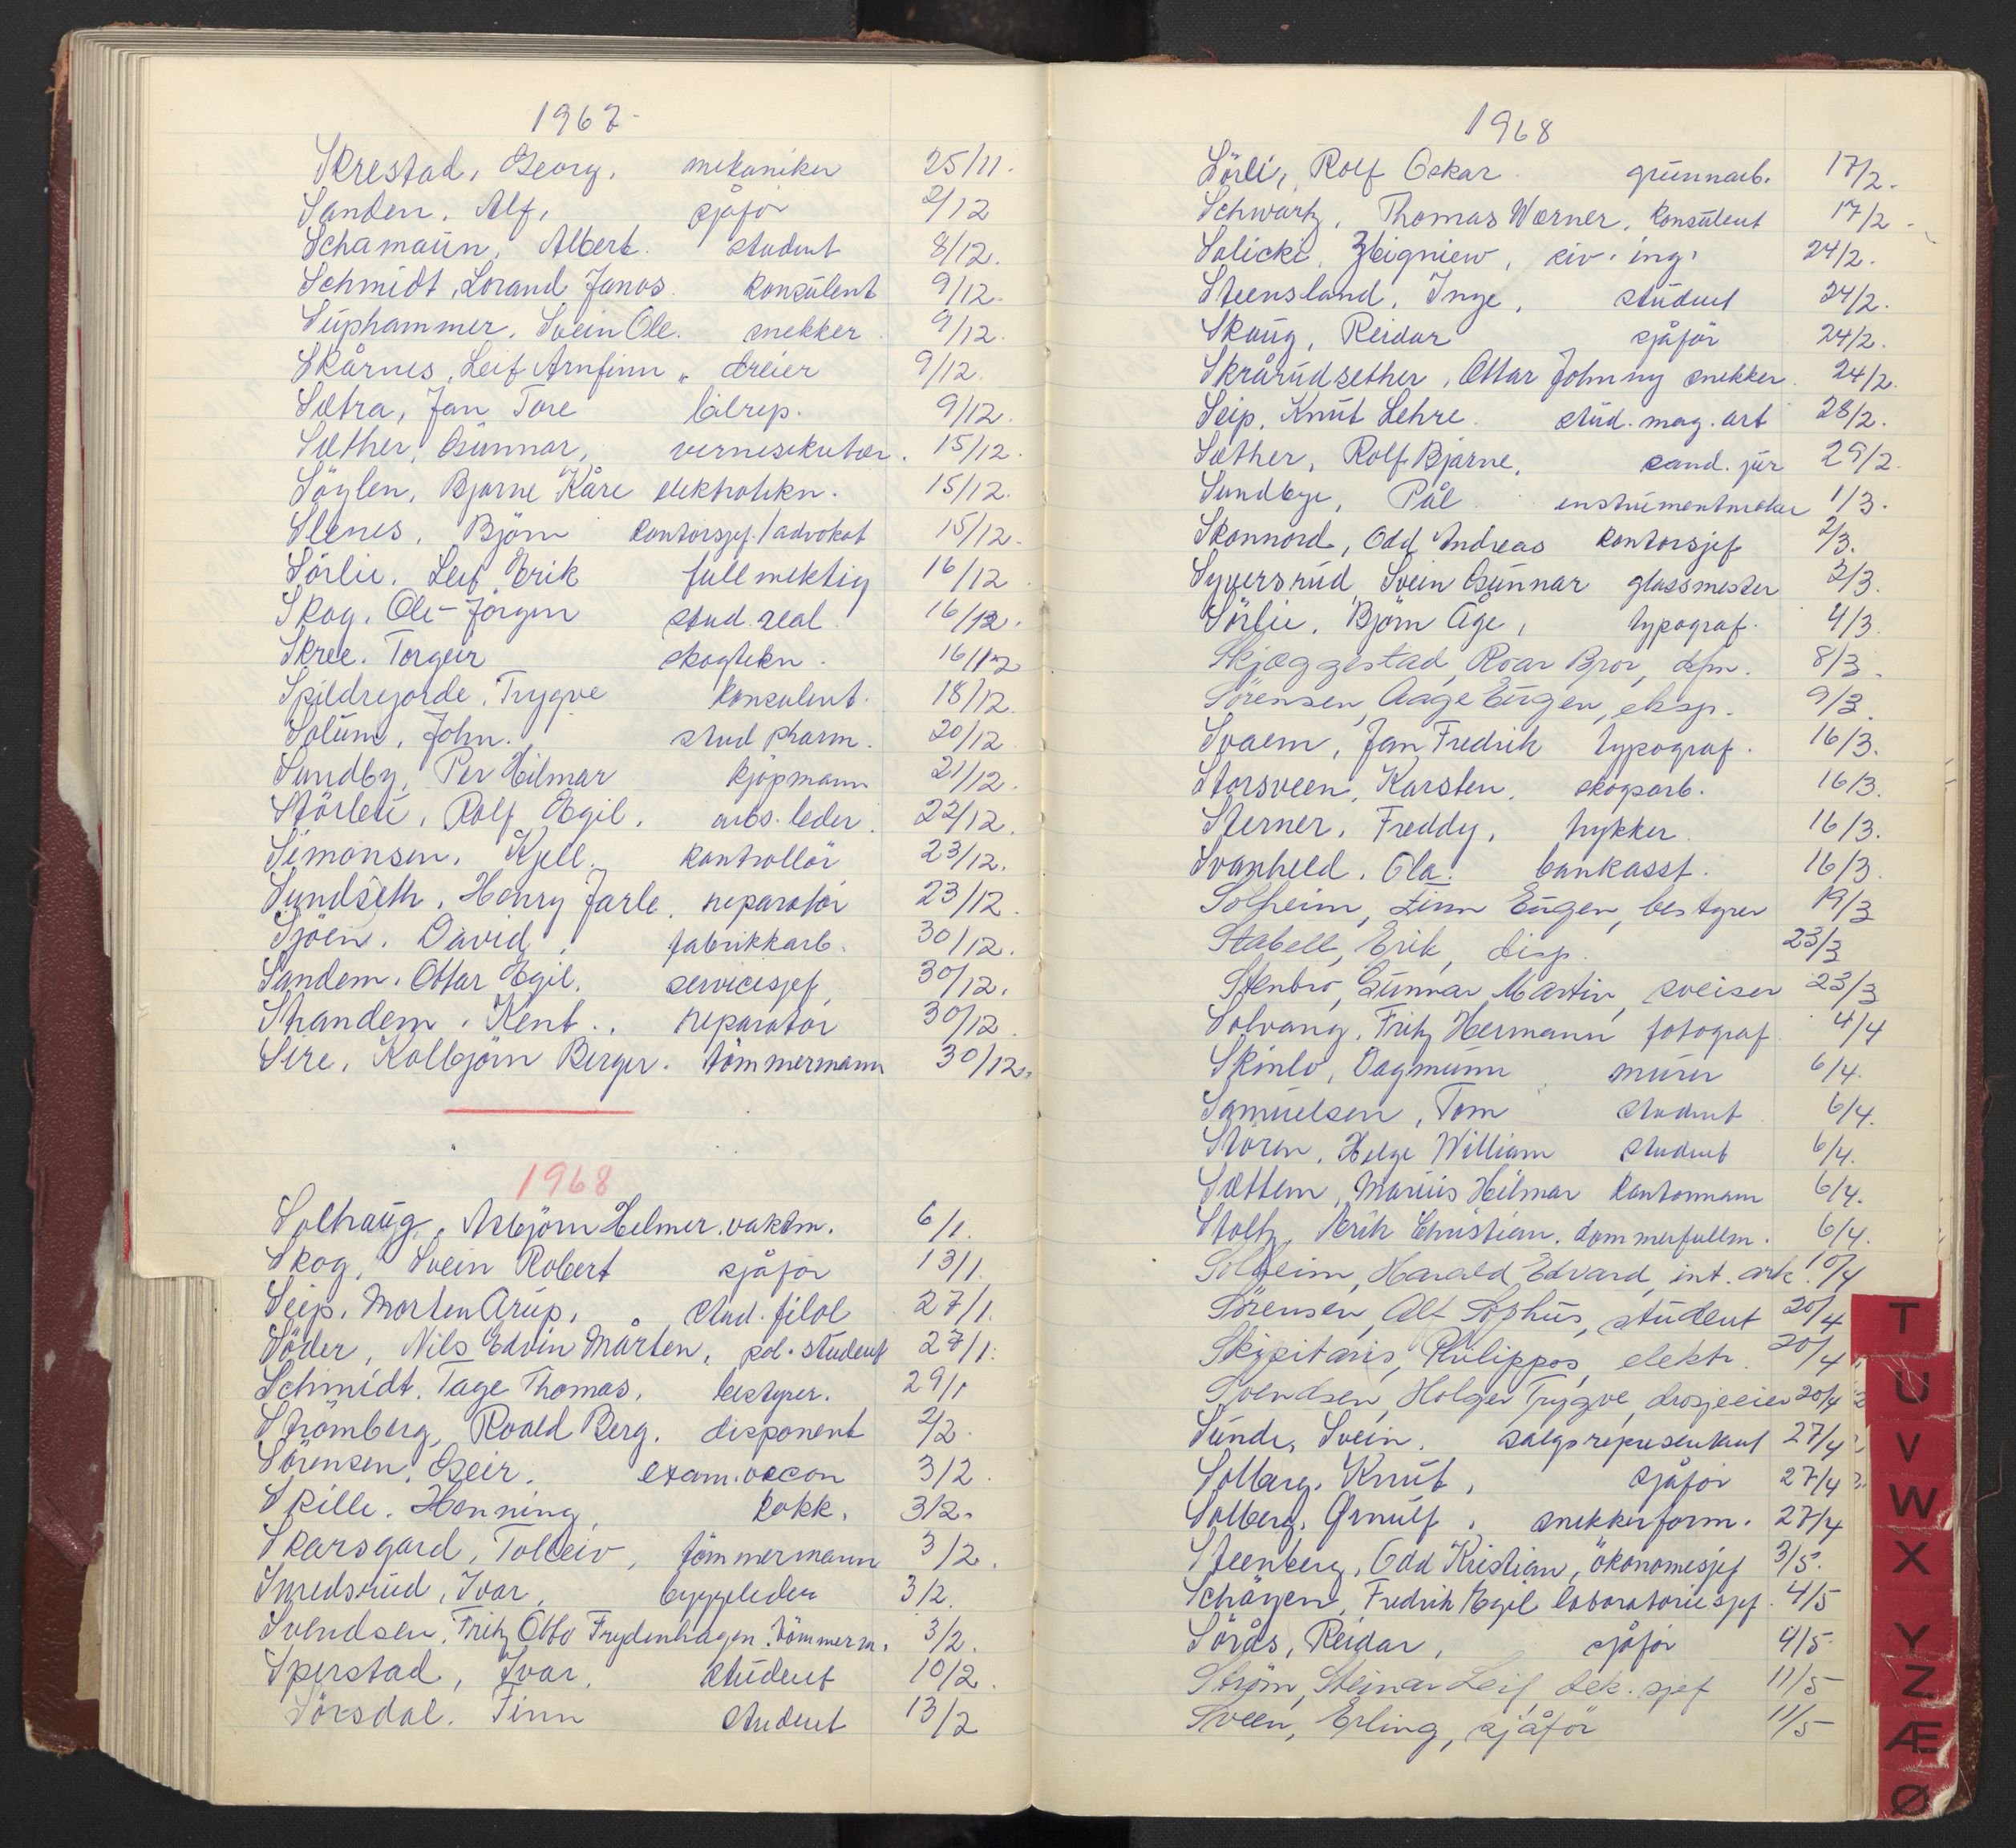 1967
Skrestad, Georg, mekaniker 25/11.
Sanden, Alf, sjåför 2/12
Schamaun, Albert. student 8/12.
Schmidt, Lorand Janos. konsulent 9/12.
Suphammer, Svein Ole. snekker 9/12.
Skårnes, Leif Arnfinn, dreier 9/12.
Sætra, Jan Tore bilrep. 9/12.
Sæther, Gunnar, 15/12.
Söylen, Bjarne Kåre elektrotekn. 15/12.
Slenes, Björn kontorsjef./advokat 15/12.
Sörlie, Leif Erik fullmektig 16/12
Skog, Ole-Jörgen stud. real. 16/12.
Skree, Torgeir skogtekn. 16/12
Spildrejorde, Trygve konsulent. 18/12.
Solum, John. stud pharm. 20/12
Sundby, Per Hilmar kjöpmann 21/12.
Störlei, Rolf Egil, arbs. leder. 22/12.
Simonsen, Kjell. kontrollör 23/12.
Sundseth, Henry Jarle, reparatör 23/12.
Sjöen, David, fabrikkarb. 30/12.
Sandem, Ottar Egil, servicesjef, 30/12.
Strandem, Kent., reparatör 30/12.
Sire, Kolbjörn Berger. tömmermann 30/12.
1968
Solhaug, Asbjörn Helmer. vaktm. 6/1.
Skog, Svein Robert sjåför 13/1.
Seip, Morten Arup, stud. filol 27/1.
Söder, Nils Edvin Mårten, pol. student 27/1.
Schmidt, Tage Thomas, bestyrer. 29/1
Strömberg, Roald Berg. disponent 2/2.
Sörensen, Geir. exam. oecon 3/2.
Skille, Henning, kokk. 3/2.
Skarsgard, Tolleiv, tömmermann 3/2.
Smedsrud, Ivar, byggleder 3/2.
Svendsen, Fritz Otto Frydenhagen. tömmerm. 3/2.
Sperstad, Ivar, student 10/2.
Sörsdal, Finn student 13/2
1968
Sörli, Rolf Oskar. grunnarb. 17/2.
Schwartz, Thomas Werner, konsulent 17/2.
Solicki, Zbigniew, siv. ing. 24/2.
Steensland, Inge, student 24/2.
Skaug, Reidar sjåför 24/2.
Skrårudsether, Ottar Johnny snekker. 24/2.
Seip, Knut Lehre. stud. mag. art 28/2.
Sæther, Rolf Bjarne, cand. jur 29/2.
Sundbye, Pål instrumentmaker 1/3.
Skonnord, Odd Andreas kontorsjef 2/3.
Syversrud, Svein Gunnar glassmester 2/3.
Sörlie, Björn Åge, typograf. 4/3.
Skjæggestad, Roar Bror, 8/3.
Sörensen, Aage Eugen, eksp. 9/3.
Svaem, Jan Fredrik typograf. 16/3.
Storsveen, Karsten, skogsarb. 16/3.
Sterner, Freddy, trykker. 16/3.
Svanheld, Ola. bankasst. 16/3.
Solheim, Finn Eugen, bestyrer 19/3
Stabell, Erik, disp. 23/3
Stenbro, Gunnar Martin, sveiser 23/3
Solvang, Fritz Hermann fotograf. 4/4
Skinlo, Dagmunn murer 6/4.
Samuelsen, Tom student 6/4.
Stören, Helge William student 6/4.
Sættem, Marius Hilmar kontormann 6/4.
Stoltz, Erik Christian. dommerfullm. 6/4.
Solheim, Harald Edvard, int. ark. 10/4
Sörensen, Alf Sophus, student 20/4
Skipitaris, Philippos, elektr. 20/4
Svendsen, Holger Trygve, drosjeeier 20/4
Sunde, Svein, salgsrepresentant 27/4
Solberg, Knut, sjåför 27/4
Solberg, Ørnulf, snekkerform. 27/4
Steenberg, Odd Kristian, ökonomesjef 3/5.
Schöyen, Fredrik Egil laboratoriesjef. 4/5
Sörås, Reidar, sjåför 4/5.
Ström, Steinar Leif, sek. sjef 11/5
Sveen, Erling, sjåför 11/5
T
U
V
W
X
Y
Z
Æ
Ø